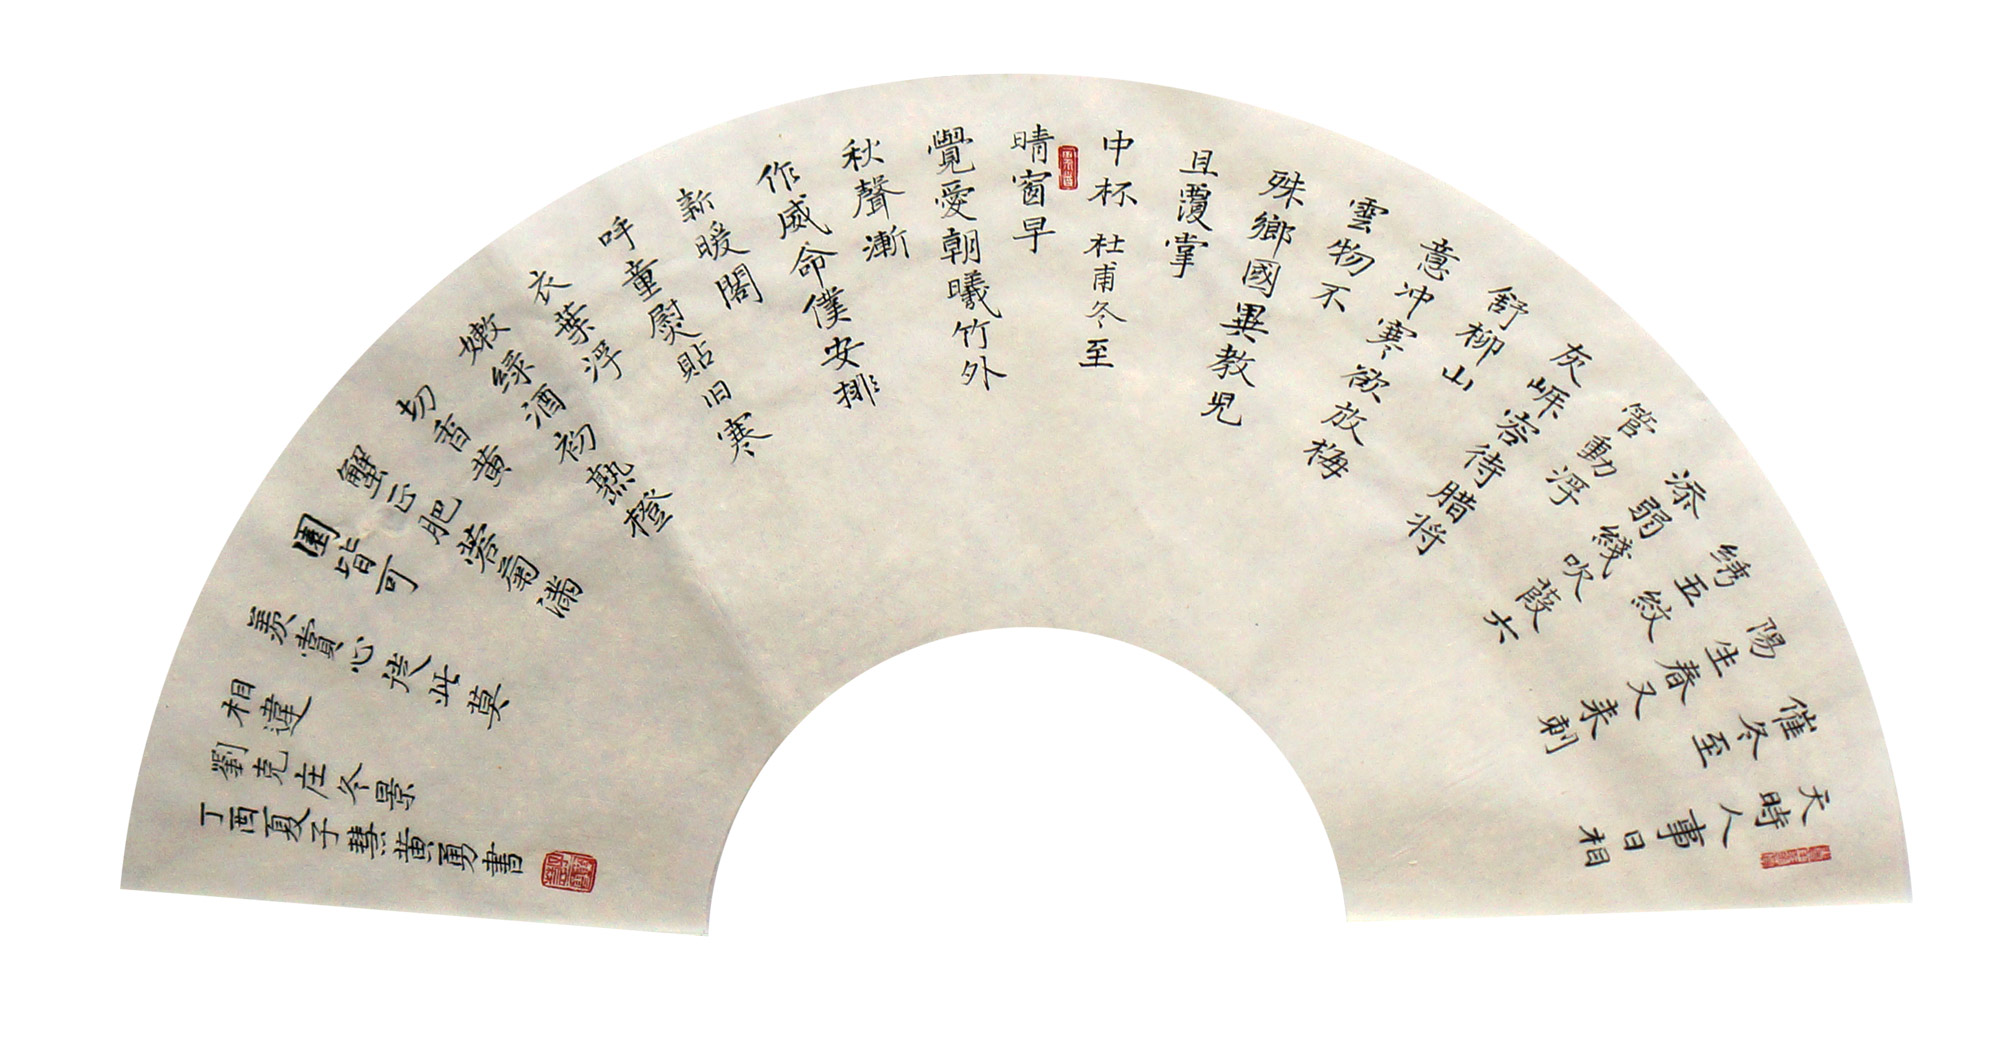 天時人事日相
催冬至
陽生春又来刺
綉五紋
添弱綫吹葭六
管動浮
灰岸容待腊将
舒柳山
意冲寒欲放梅
雲物不
殊鄉國異教児
且覆掌
中杯 杜甫冬至
晴窗早
覺愛朝曦竹外
秋聲漸
作威命僕安排
新暖閣
呼童熨貼旧寒
衣葉浮
嫩緑酒初熟橙
切香黄
蟹正肥蓉菊滿
園皆可
羨賞心従此莫
相違
劉克庄冬景
丁酉夏子慧黄勇書